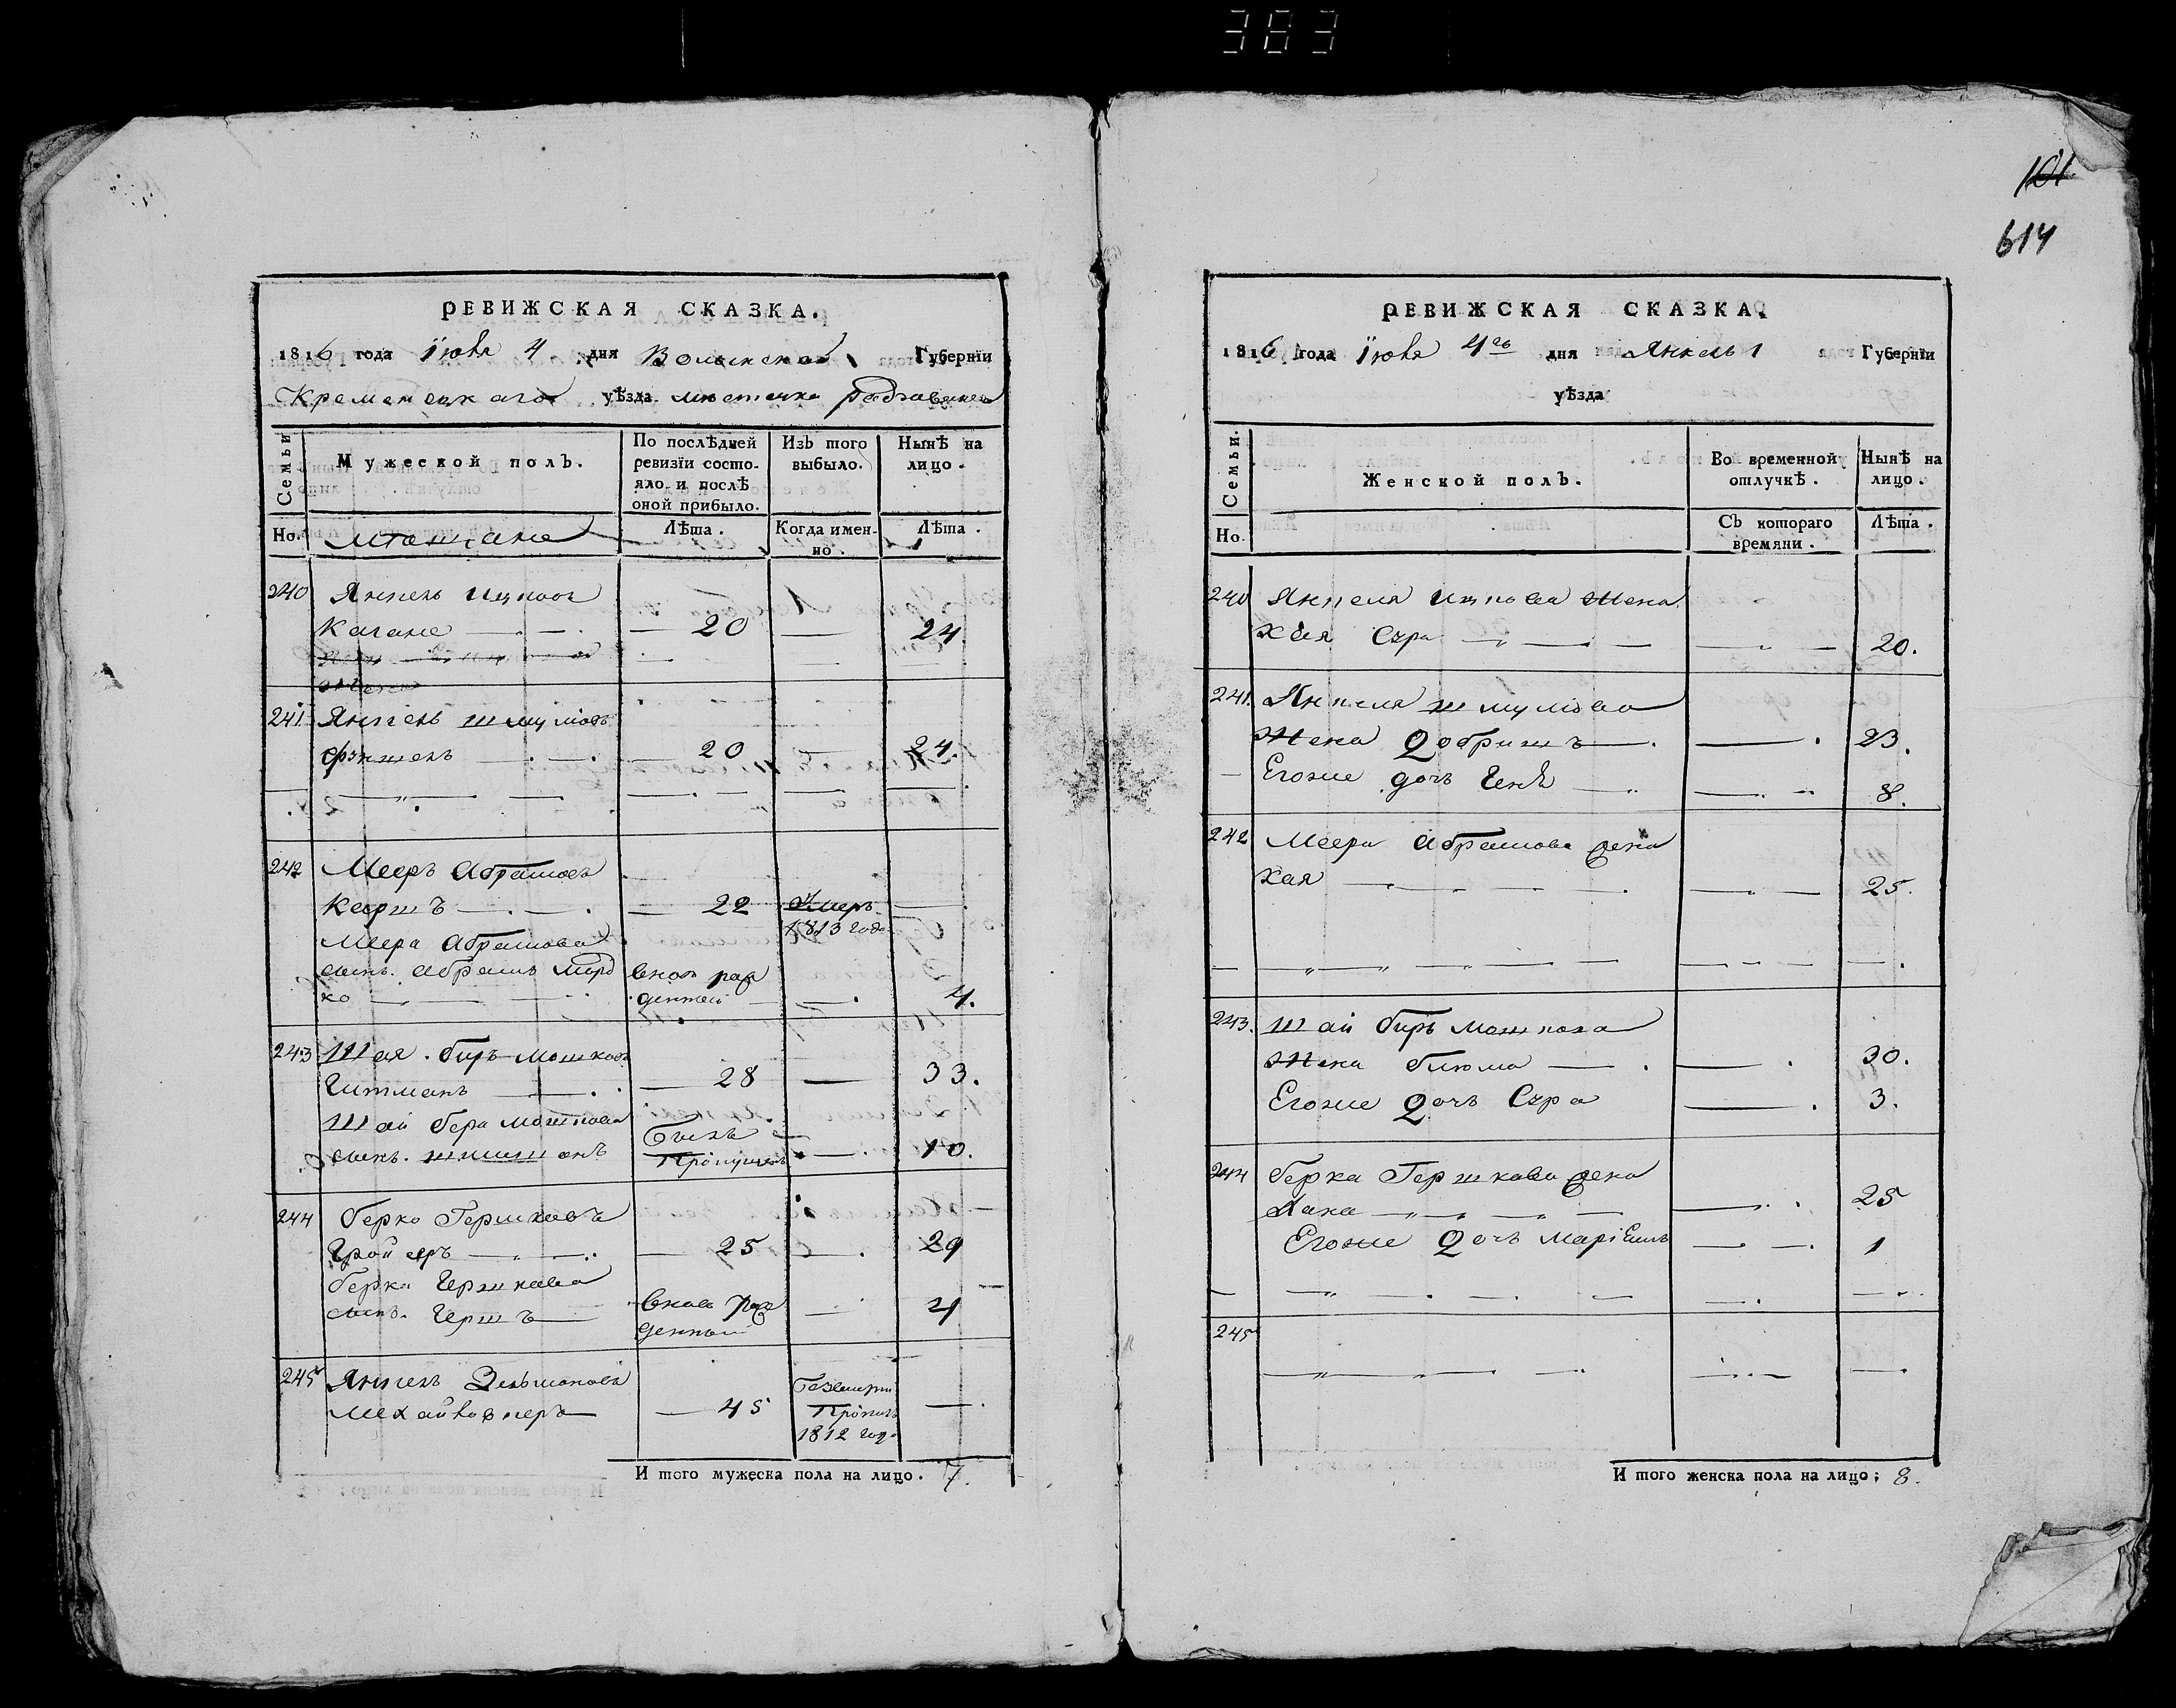 383
101
614
РЕВИЖСКАЯ СКАЗКА.
1816 года Iюня 4 дня Волынской Губернїи
Кременецкаго уѣзда местечка Радзивилова
Семьи
Мужеской полъ.
По послѣдней ревизїи состо-
яло и послѣ
оной прибыло.
Изъ того
выбыло.
Нынѣ на
лицо.
Но.
Мѣщане
Лѣта.
Когда имен-
но.
Лѣта.
240 Янкель Ицковъ
Кагане 20 24.
241. Янкель Шмулiовъ
20 24.
242 Мееръ Абрамовъ
22 Умеръ
1813 года
Меера Абрамова
сынъ. Абрамъ Морд
ко
вновь рож
денной 4.
243 Шая. Беръ Мошковъ
Гитманъ 28 33.
Шаи Бера Мошкова
сынъ. Шимшонъ
Былъ
Пропущенъ 10.
244 Берко Гершковъ
25 29
Берка Гершкова
сынъ. Гершъ
вновь рож
денный 4
245 Янкель
45
Пропалъ
1812 года
И того мужеска пола на лицо. 7.
РЕВИЖСКАЯ СКАЗКА.
1816 года Iюня 4го дня Губернїи
уѣзда
Семьи.
Женской полъ.
Во временной
отлучкѣ.
Нынѣ на
лицо.
Но.
Съ котораго
времяни.
Лѣта.
240 Янкеля Ицкова Жена
Хая Сура 20.
241. Янкеля Шмулiова
Жена Добришъ 23.
Егоже дочь Геня 8.
242 Меера Абрамова жена
Хая 25.
243. Шаи Беръ Мошкова
Жена Блюма 30.
Егоже Дочь Сура 3.
244 Берка Гершкова жена
Хана 25
Егоже Дочь 1
245
И того женска пола на лицо; 8.